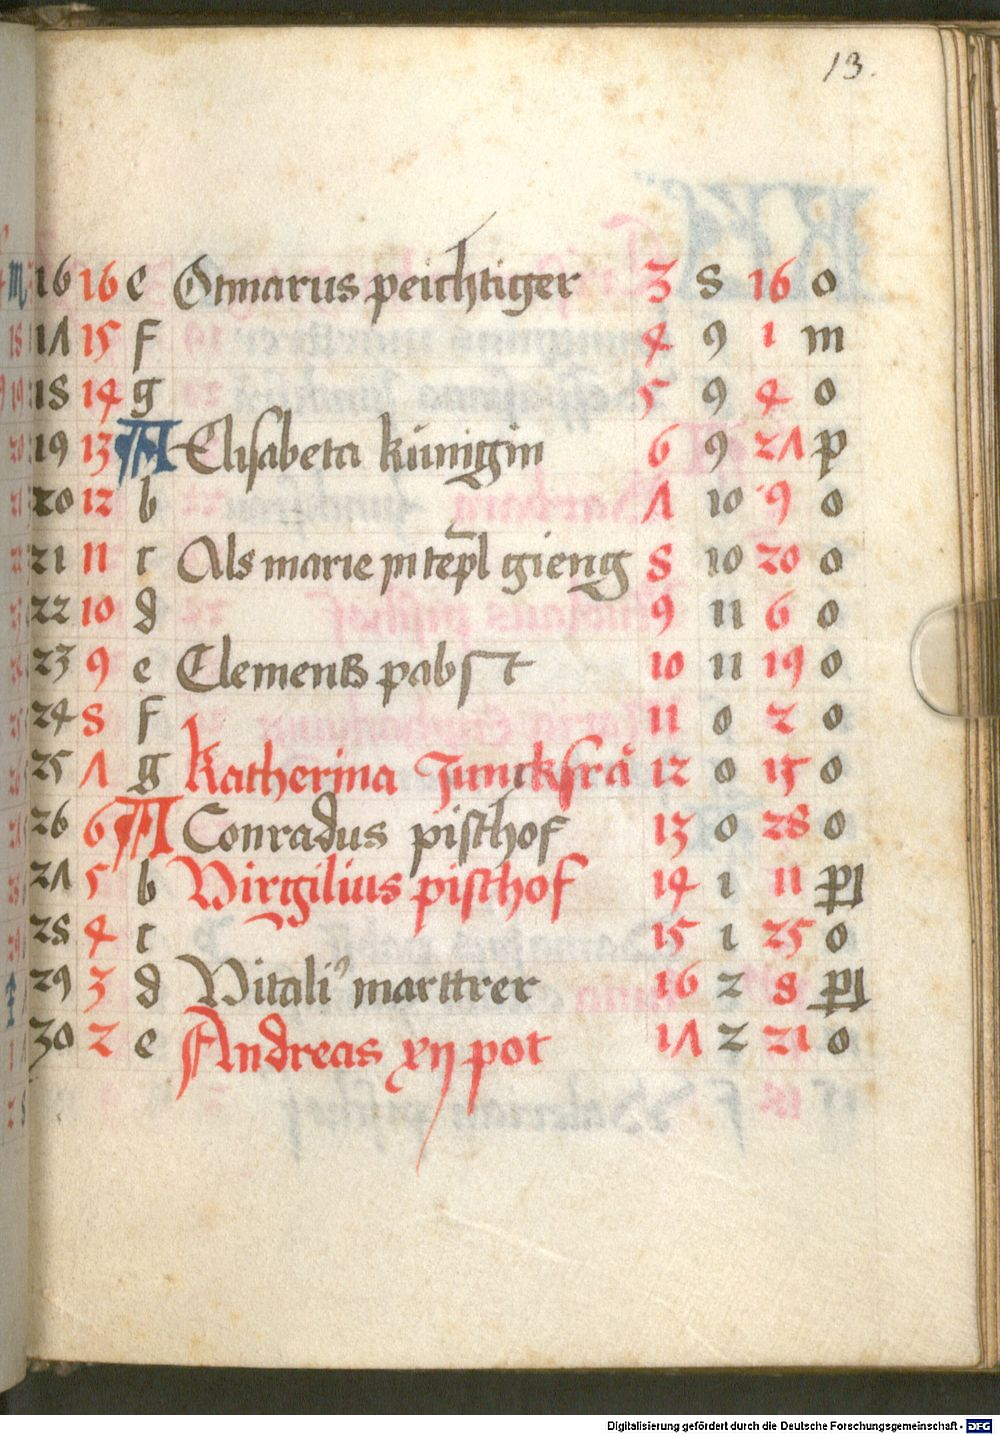 13.
16 16 e Otmarus peichtiger 3 8 16 o
17 15 f 4 9 1 m
18 14 g 5 9 4 o
19 13 A Elisabeta künigin 6 9 27 p
20 12 b 7 10 9 o
21 11 c Als marie in tēpl gieng 8 10 20 o
22 10 d 9 11 6 o
23 9 e Clements pabst 10 11 19 o
24 8 f 11 0 2 o
25 7 g Katherina Junckfrå 12 0 15 o
26 6 A Conradus pischof 13 0 28 o
27 5 b Virgilius pischof 14 1 11 pl
28 4 c 15 1 25 o
29 3 d Vitali9 marttrer 16 2 8 pl
30 2 e Andreas xij pot 17 2 21 o
Digitalisierung gefördert durch die Deutsche Forschungsgemeinschaft - DFG